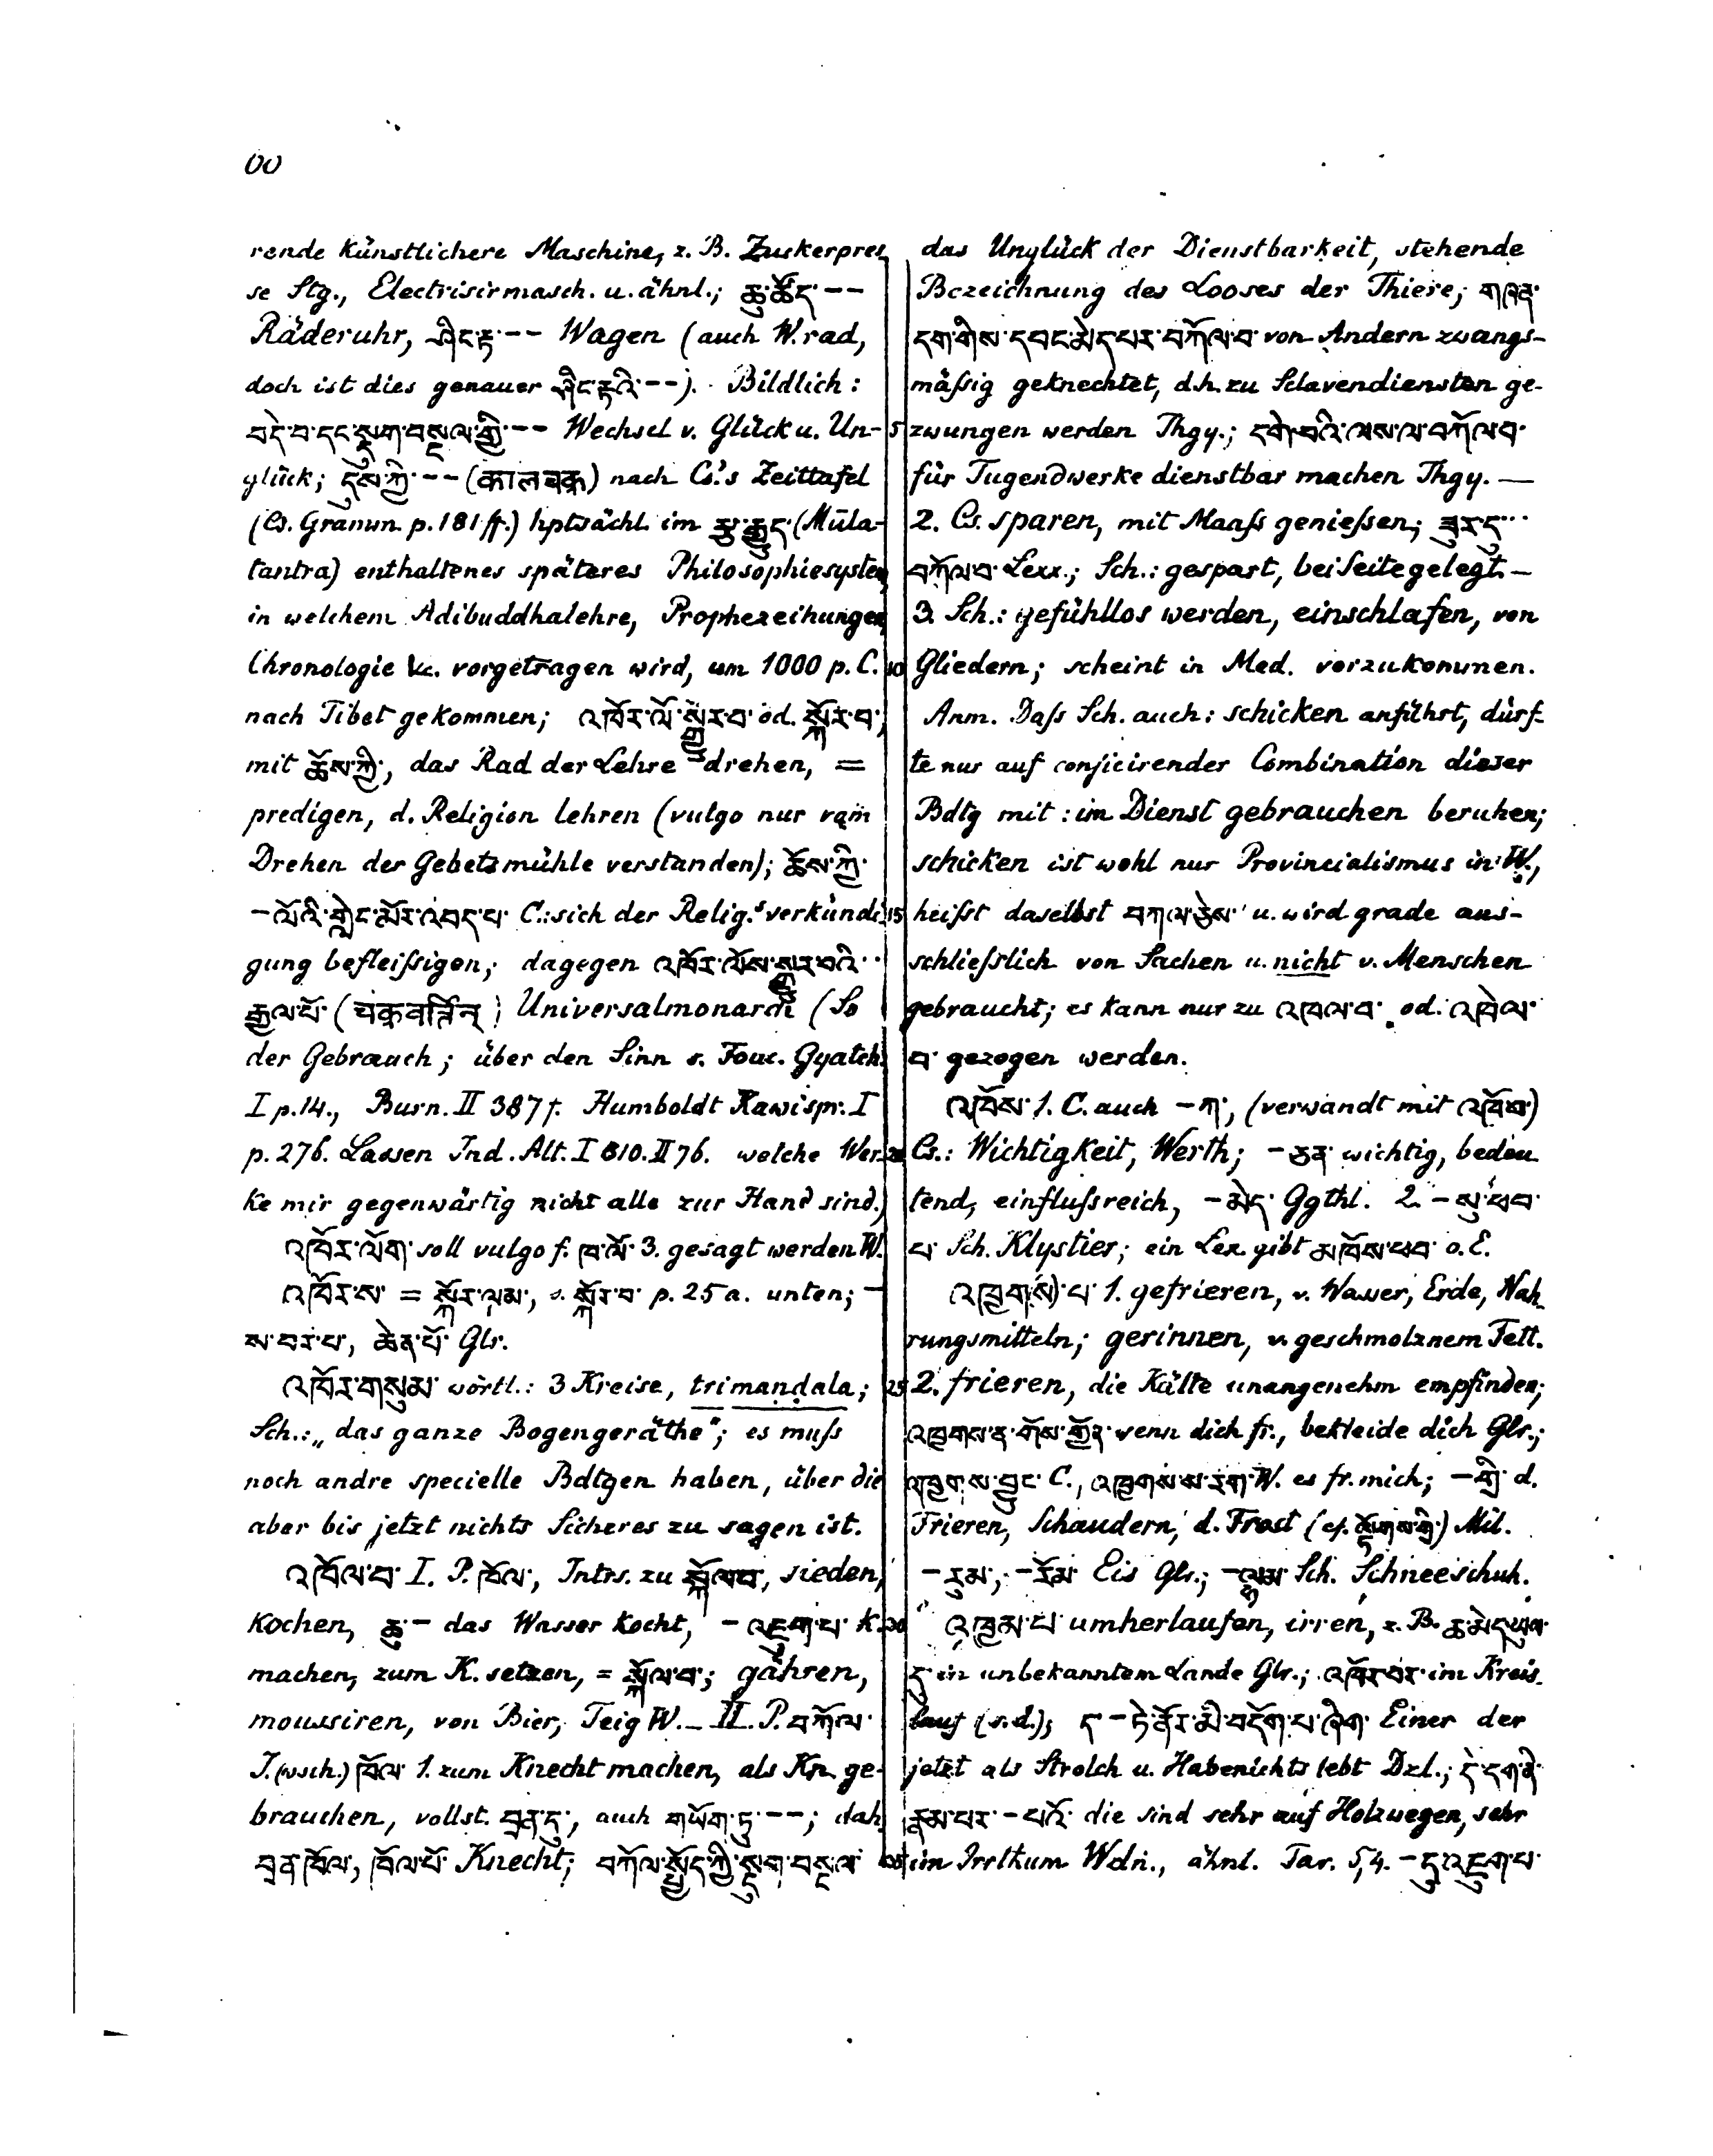 00
rende künstlichere Maschine, z. B. Zuckerpres
se Stg., Electrisirmasch. u. ähnl.; ཆུ་ཚོད་ --
Räderuhr, ཤིང་རྟ་ -- Wagen (auch W. rad,
doch ist dies genauer ཤིང་རྟའི་ --). Bildlich:
བདེ་བ་དང་སྡུག་བསྔལ་གྱི་ -- Wechsel v. Glück u. Un-
glück; དུས་ཀྱི་ -- (कालचक्र) nach Cs.'s Zeittafel
(Cs. Gramm. p. 181 ff.) hptsächl. im རྩ་རྒྱུད་ (Mūla-
tantra) enthaltenes späteres Philosophiesystem,
in welchem Adibuddhalehre, Prophezeihungen,
Chronologie &c. vorgetragen wird, um 1000 p. C.
nach Tibet gekommen; འཁོར་ལོ་སྒྱུར་བ་ od. སྐོར་བ་,
mit ཆོས་ཀྱི་, das Rad der Lehre drehen, =
predigen, d. Religion lehren (vulgo nur vom
Drehen der Gebetsmühle verstanden); ཆོས་ཀྱི་
-ལོའི་གླེང་མོར་འབད་པ་ C.: sich der Relig.sverkündi
gung befleißigen; dagegen འཁོར་ལོས་སྒྱུར་བའི་
རྒྱལ་པོ་ (चक्रवर्त्तिन्) Universalmonarch (So
der Gebrauch; über den Sinn s. Fouc. Gyatch.
I p. 14., Burn. II 387 f. Humboldt Kawispr. I
p. 276. Lassen Ind. Alt. I 810. II 76. welche Wer-
ke mir gegenwärtig nicht alle zur Hand sind.)
འཁོར་ལོག་ soll vulgo f. ཁ་ལོ་ 3. gesagt werden W.
འཁོར་ས་ = སྐོར་ལམ་, s. སྐོར་བ་ p. 25 a. unten; -
ས་བར་པ་, ཆེན་པོ་ Glr.
འཁོར་གསུམ་ wörtl.: 3 Kreise, trimaṇḍala;
Sch.: „das ganze Bogengeräthe"; es muß
noch andre specielle Bdtgen haben, über die
aber bis jetzt nichts Sicheres zu sagen ist.
འཁོལ་བ་ I. P. ཁོལ་, Intrs. zu སྐོལ་བ་, sieden,
kochen, ཆུ་ - das Wasser kocht, -འཇུག་པ་ K.
machen, zum K. setzen, = སྐོལ་བ་; gähren,
moussiren, von Bier, Teig W. _ II. P. བཀོལ་
I. (wsch.) ཁོལ་ 1. zum Knecht machen, als Kn. ge-
brauchen, vollst. བྲན་དུ་, auch གཡོག་ཏུ་ --; dah.
བྲན་ཁོལ་, ཁོལ་པོ་ Knecht; བཀོལ་སྤྱོད་ཀྱི་སྡུག་བསྔལ་
das Unglück der Dienstbarkeit, stehende
Bezeichnung des Looses der Thiere; གཞན་
དག་གིས་དབང་མེད་པར་བཀོལ་བ་ von Andern zwangs-
mäßig geknechtet, d. h. zu Sclavendiensten ge-
5 zwungen werden Thgy.; དགེ་བའི་ལས་ལ་བཀོལ་བ་
für Tugendwerke dienstbar machen Thgy. —
2. Cs. sparen, mit Maaß genießen; ཟུར་དུ་
བཀོལ་བ་ Lexx.; Sch.: gespart, bei Seite gelegt. —
3. Sch.: gefühllos werden, einschlafen, von
10 Gliedern; scheint in Med. vorzukommen.
Anm. Daß Sch. auch: schicken anführt, dürf-
te nur auf conjicirender Combination dieser
Bdtg mit: im Dienst gebrauchen beruhen;
schicken ist wohl nur Provincialismus in W.,
15 heißt daselbst བཀལ་ཅེས་ u. wird grade aus-
schließlich von Sachen u. nicht v. Menschen
gebraucht; es kann nur zu འཁལ་བ་ od. འཁེལ་
བ་ gezogen werden.
འཁོས་ 1. C. auch -ཀ་, (verwandt mit འཁོབ་)
Cs.: Wichtigkeit, Werth; -ཅན་ wichtig, bedeu
tend, einflußreich, -མེད་ Ggthl. 2. -སུ་ཕབ་
པ་ Sch. Klystier; ein Lex. gibt མ་ཁོས་ཕབ་ o. E.
འཁྱག(ས)་པ་ 1. gefrieren, v. Wasser, Erde, Nah
rungsmitteln; gerinnen, v. geschmolznem Fett.
25 2. frieren, die Kälte unangenehm empfinden;
འཁྱགས་ན་གོས་གྱོན་ wenn dich fr., bekleide dich Glr.;
འཁྱགས་བྱུང་ C., འཁྱགས་ས་རག་ W. es fr. mich; -གྱི་ d.
Frieren, Schaudern, d. Frost Mil.
-རུམ་, -རོམ་ Eis Glr.; -ལྷམ་ Sch. Schneeschuh.
30 འཁྱམ་པ་ umherlaufen, irren, z. B. ཆ་མེད་ཡུལ་
དུ་ in unbekanntem Lande Glr.; འཁོར་བར་ im Kreis-
lauf (s. d.); ད་ -ཏེ་ནོར་མི་བདོག་པ་ཞིག་ Einer der
jetzt als Strolch u. Habenichts lebt Dzl.; དེ་དག་ནི་
རྣམ་པར་ -པའོ་ die sind sehr auf Holzwegen, sehr
im Irrthum Wdn., ähnl. Tar. 5,4. -དུ་འཇུག་པ་